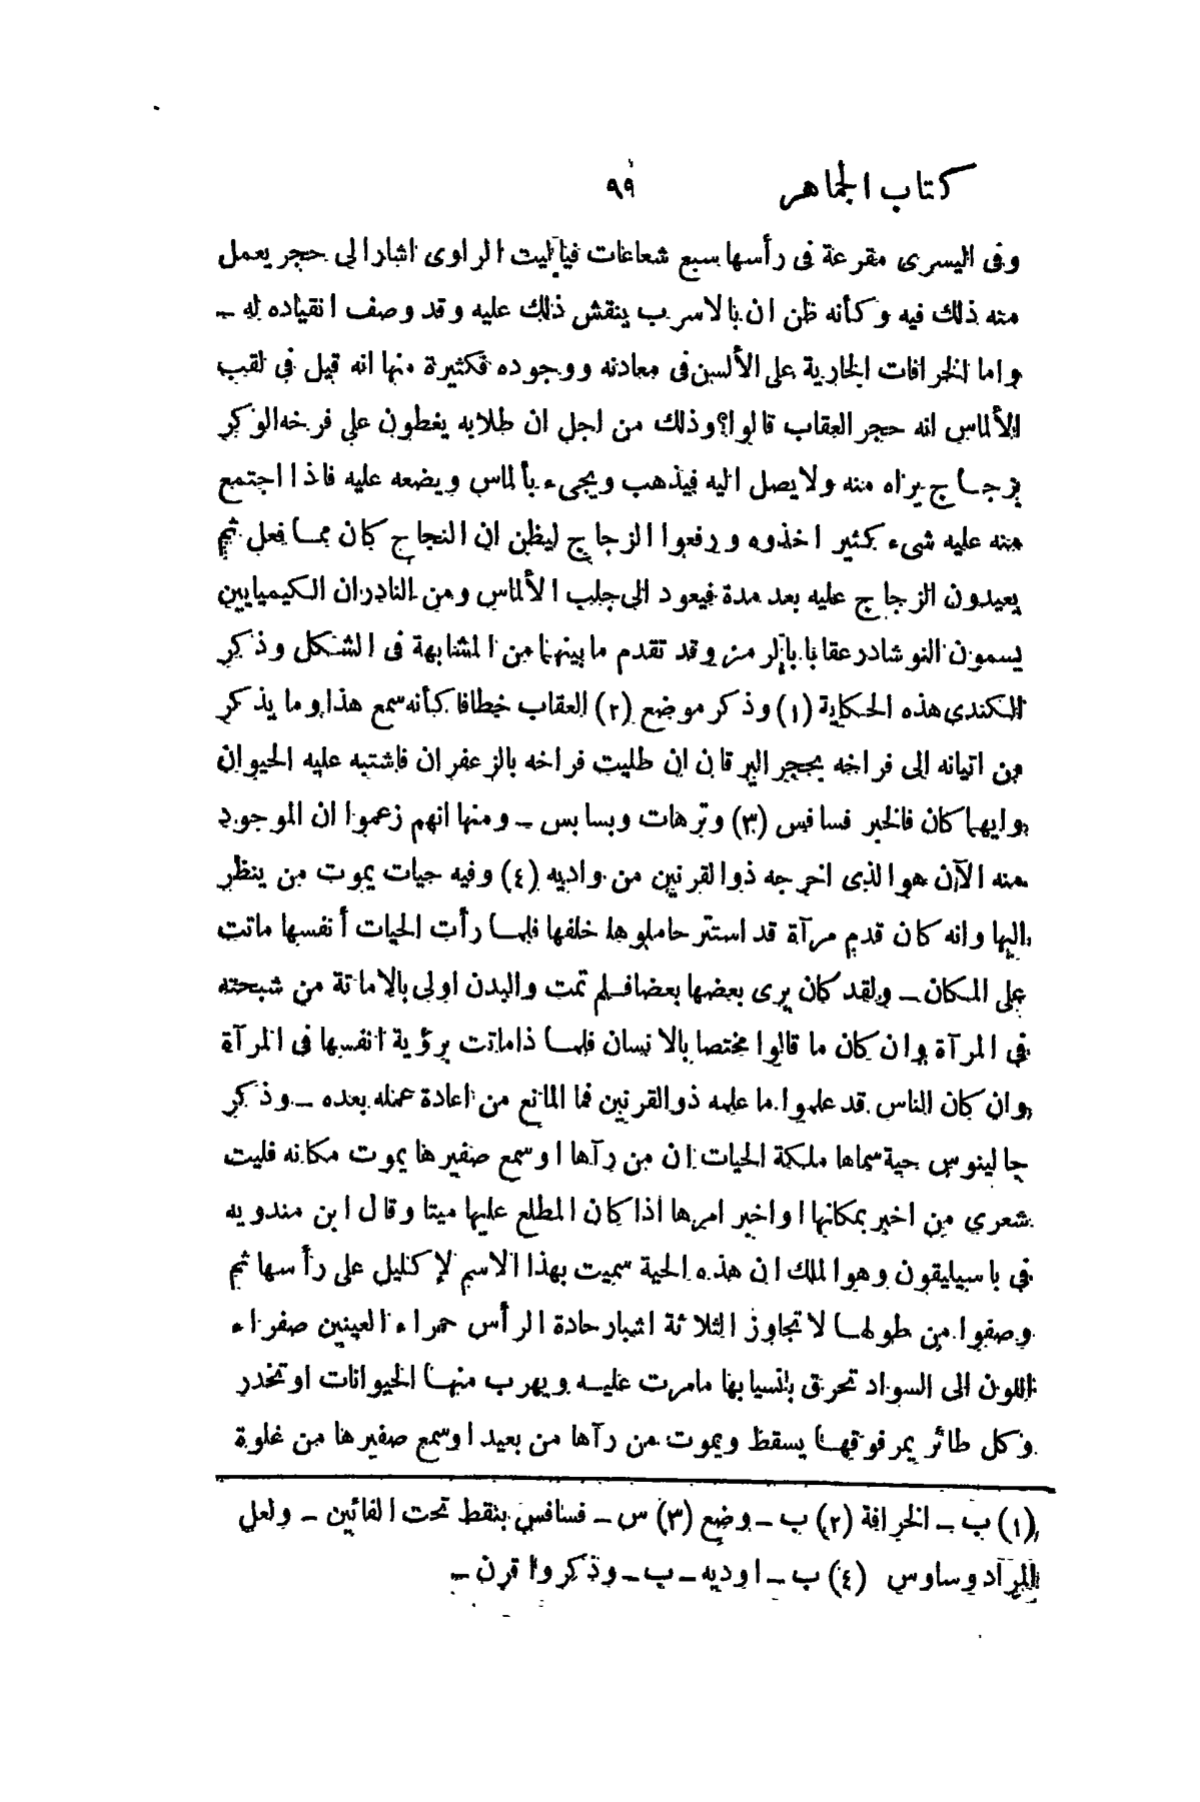 كتاب الجماهر ٩٩
وفى اليسرى مقرعة فى رأسها سبع شعاعات فياليت الراوى اشار الى حجر يعمل
منه ذلك فيه وكأنه ظن ان بالاسرب ينقش ذلك عليه وقد وصف انقياده له ـ
واما الخرافات الجارية على الألسن فى معادنه ووجوده فكثيرة منها انه قيل فى لقب
الألماس انه حجر العقاب قالوا؟ وذلك من اجل ان طلابه يغطون على فرخه الوكر
بزجاج يراه منه ولا يصل اليه فيذهب ويجىء بألماس ويضعه عليه فاذا اجتمع
منه عليه شىء كثير اخذوه ورفعوا الزجاج ليظن ان النجاح كان مما فعل ثم
يعيدون الزجاج عليه بعد مدة فيعود الى جلب الألماس ومن النادر ان الكيميايين
يسمون النوشادر عقابا بالرمز وقد تقدم ما بينهما من المشابهة فى الشكل وذكر
الكندى هذه الحكاية (١) وذكر موضع (٢) العقاب خطافا كأنه سمع هذا وما يذكر
من اتيانه الى فراخه بحجر اليرقان ان طليت فراخه بالزعفران فاشتبه عليه الحيوان
وايهما كان فالخبر فسافس (٣) وترهات وبسابس ـ ومنها انهم زعموا ان الموجود
منه الآن هو الذى اخرجه ذو القرنين من واديه (٤) وفيه حيات يموت من ينظر
اليها وانه كان قدم مرآة قد استتر حاملوها خلفها فلما رأت الحيات أنفسها ماتت
على المكان ـ ولقد كان يرى بعضها بعضا فلم تمت والبدن اولى بالاماتة من شبحته
فى المرآة وان كان ما قالوا مختصا بالانسان فلما ذا ماتت برؤية انفسها فى المرآة
وان كان الناس قد علموا ما علمه ذو القرنين فما المانع من اعادة عمله بعده ـ وذكر
جالينوس حية سماها ملكة الحيات ان من رآها او سمع صفيرها يموت مكانه فليت
شعرى من اخبر بمكانها او اخبر امرها اذا كان المطلع عليها ميتا وقال ابن مندويه
فى باسيليقون وهو الملك ان هذه الحية سميت بهذا الاسم لإكليل على رأسها ثم
وصفوا من طولها لا تجاوز الثلاثة اشبار حادة الرأس حمراء العينين صفراء
اللون الى السواد تحرق بانسيابها ما مرت عليه ويهرب منها الحيوانات او تخدر
وكل طائر يمر فوقها يسقط ويموت من رآها من بعيد او سمع صفيرها من غلوة
(١) ب ـ الخرافة (٢) ب ـ وضع (٣) س ـ فسافس بنقط تحت الفائين ـ ولعل
المراد وساوس (٤) ب ـ اوديه ـ ب ـ وذكروا قرن ـ